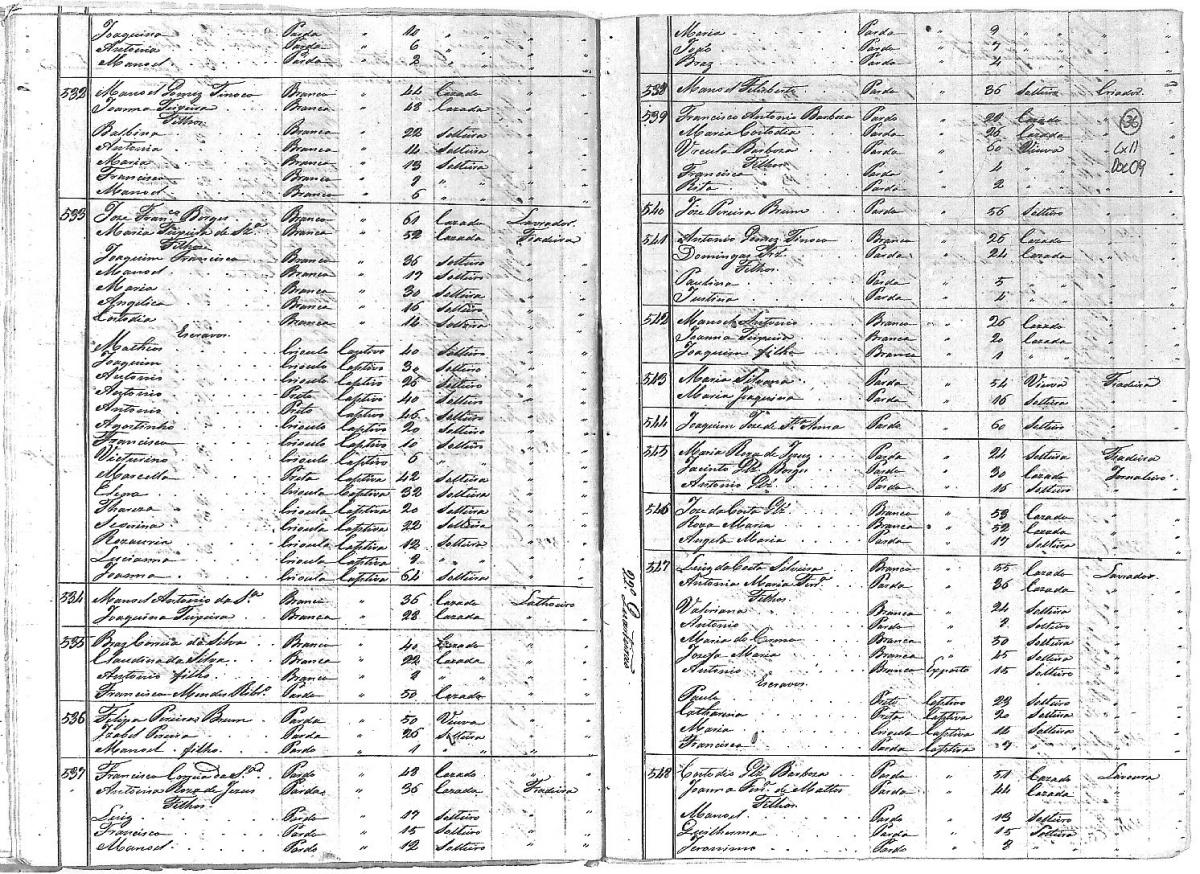 Joaquina Parda " 10 " " "
Antonia Parda " 6 " " "
Manoel Pardo " 2 " " "
532 Manoel Gomez Tinoco Branco " 44 Cazado "
Joanna Teixeira Branca " 48 Cazada "
Filhos
Balbina Branca " 22 Solteira "
Antonia Branca " 14 Solteira "
Maria Branca " 13 Solteira "
Francisca Branca " 9 " "
Manoel Branco " 6 " "
533 Joze Franco Borges Branco " 61 Cazado Lavrador
Maria Teixeira de Sza Branca " 52 Cazada Fiadeira
Filhos
Joaquim Francisco Branco " 36 Solteiro "
Manoel Branco " 17 Solteiro "
Maria Branca " 30 Solteira "
Angelica Branca " 16 Solteira "
Custodia Branca " 14 Solteira "
Escravos
Matheos Crioulo Captivo 40 Solteiro "
Joaquim Crioulo Captivo 30 Solteiro "
Antonio Crioulo Captivo 25 Solteiro "
Antonio Preto Captivo 40 Solteiro "
Antonio Preto Captivo 46 Solteiro "
Agostinho Crioulo Captivo 20 Solteiro "
Francisco Crioulo Captivo 10 Solteiro "
Victurino Crioulo Captivo 6 " "
Marcella Preta Captiva 42 Solteira "
Crioula Captiva 32 Solteira "
Thereza Crioula Captiva 20 Solteira "
Crioula Captiva 22 Solteira "
Rozaura Crioula Captiva 12 Solteira "
Lucianna Crioula Captiva 9 " "
Joanna Crioula Captiva 64 Solteira "
534 Manoel Antonio da Sa Branco " 36 Cazado
Joaquina Teixeira Branca " 28 Cazada "
535 Braz Correia da Silva Branco " 40 Cazado "
Claudina da Silva Branca " 22 Cazada "
Antonio filho Branco " 8 " "
Francisco Mendes Ribro Pardo " 50 Cazado "
536 Felipa Pereira Brum Parda " 50 Viuva "
Izabel Pereira Parda " 26 Solteira "
Manoel filho Pardo " 1 " "
537 Francisco Correa da Sa Pardo " 48 Cazado "
Antonia Roza de Jezus Parda " 36 Cazada Fiadeira
Filhos
Luiz Pardo " 17 Solteiro "
Francisco Pardo " 15 Solteiro "
Manoel Pardo " 12 Solteiro "
Maria Parda " 9 " "
José Pardo " 7 " "
Braz Pardo " 4 " "
538 Manoel Feliberto Pardo " 36 Solteiro Criador
539 Francisco Antonio Barboza Pardo " 28 Cazado "
Maria Custodia Parda " 26 Cazada "
Urcula Barboza Parda " 60 Viuva "
Filhos
Francisca Parda " 4 " "
Rita Parda " 2 " "
36
Cx 11
Doc 09
540 Joze Pereira Brum Pardo " 56 Solteiro "
541 Antonio Gomez Tinoco Branco " 26 Cazado "
Domingas Parda " 24 Cazada "
Filhos
Paulina Parda " 5 " "
Justina Parda " 4 " "
542 Manoel Antonio Branco " 26 Cazado
Joanna Teixeira Branca " 20 Cazada
Joaquim filho Branco " 1 " "
543 Maria Silvana Parda " 54 Viuva Fiadeira
Maria Joaquina Parda " 16 Solteira
544 Joaquim Joze de Sta Anna Pardo " 60 Solteiro "
545 Maria Roza de Jezus Parda " 24 Solteira Fiadeira
Jacinto Glz Borges Pardo " 30 Cazado Jornaleiro
Antonio Glz Pardo " 16 Solteiro "
546 Joze da Costa Glz Branco " 53 Cazado
Roza Maria Branca " 52 Cazada
Angela Maria Parda " 17 Solteira
547 Luiz da Costa Silveira Branco " 55 Cazado Lavrador
Antonia Maria Ferra Parda " 36 Cazada "
Filhos
Valeriana Branca " 24 Solteira "
Antonio Pardo " 8 Solteiro "
Maria do Carmo Branca " 50 Solteira "
Jozefa Maria Branca " 45 Solteira "
Antonio Branco Exposto 15 Solteiro "
Escravos
Paulo Preto Captivo 28 Solteiro "
Catharina Preta Captiva 20 Solteira "
Maria Crioula Captiva 14 Solteira "
Francisca Parda Captiva 7 " "
548 Custodio Glz Barboza Pardo " 51 Cazado Lavoura
Joanna Ferra de Mattos Parda " 44 Cazada
Filhos
Manoel Pardo " 18 Solteiro "
Guilherma Parda " 15 Solteira "
Jeronimo Pardo " 8 " "